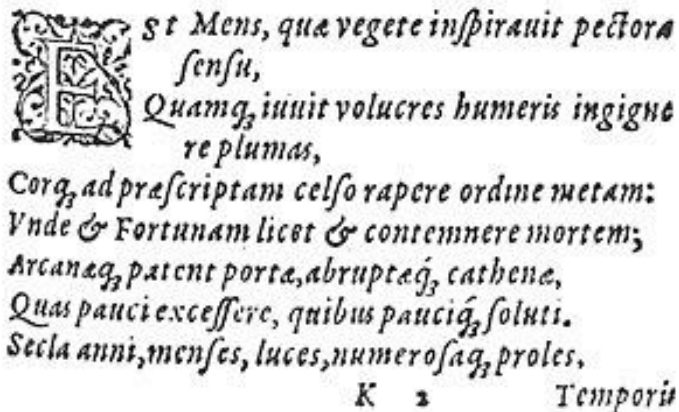 Est Mens, quæ vegete inſpirauit pectora
ſenſu,
Quamq́; iuuit volucres humeris ingigne
re plumas,
Corq́; ad præſcriptam celſo rapere ordine metam:
Vnde & Fortunam licet & contemnere mortem;
Arcanæq́; patent portæ, abruptæq́; cathenæ,
Quas pauci exceſſere, quibus pauciq́; ſoluti.
Secla anni, menſes, luces, numeroſaq́; proles,
K 2 Temporis